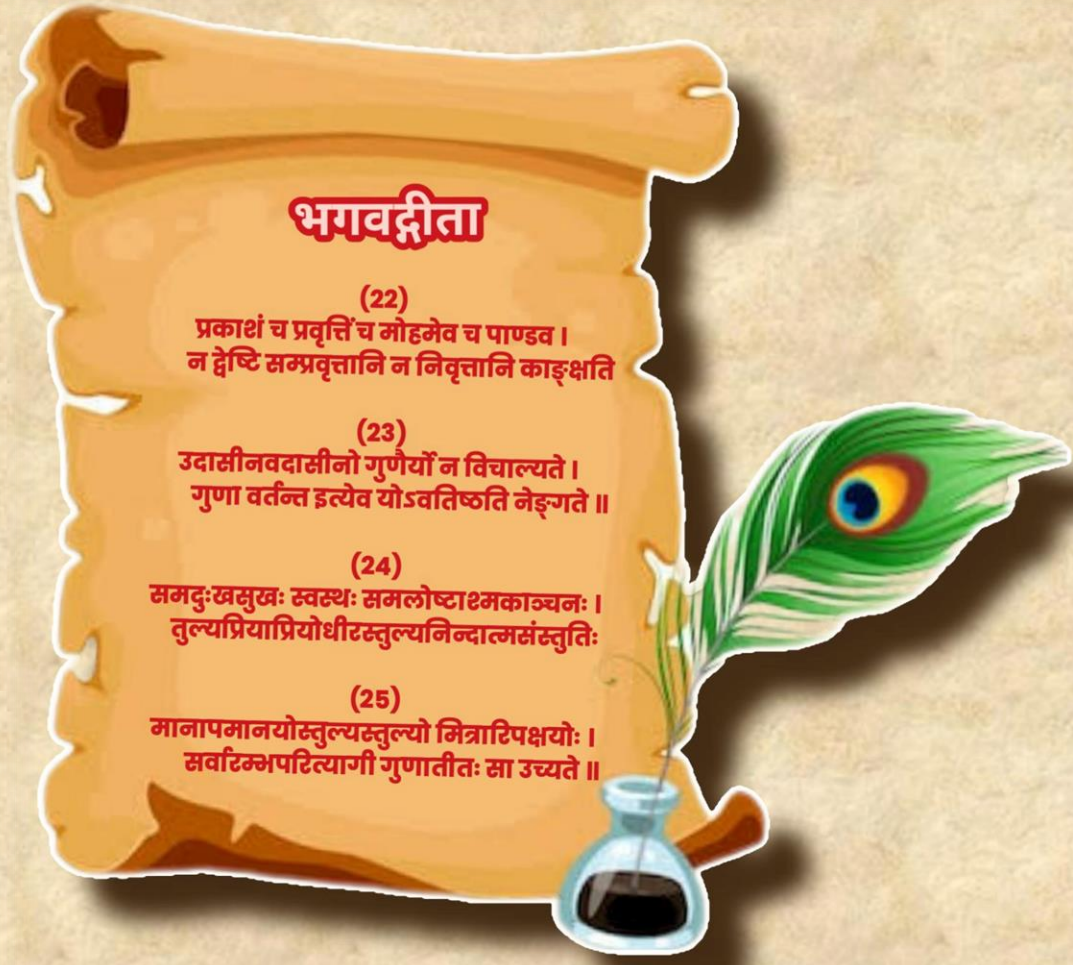 भगवद्गीता
(22)
प्रकाशं च प्रवृत्तिं च मोहमेव च पाण्डव ।
न द्वेष्टि सम्प्रवृत्तानि न निवृत्तानि काङ्क्षति
(23)
उदासीनवदासीनो गुणैर्यो न विचाल्यते ।
गुणा वर्तन्त इत्येव योऽवतिष्ठति नेङ्गते ॥
(24)
समदुःखसुखः स्वस्थः समलोष्टाश्मकाञ्चनः ।
तुल्यप्रियाप्रियोधीरस्तुल्यनिन्दात्मसंस्तुतिः
(25)
मानापमानयोस्तुल्यस्तुल्यो मित्रारिपक्षयोः ।
सर्वारम्भपरित्यागी गुणातीतः सा उच्यते ॥